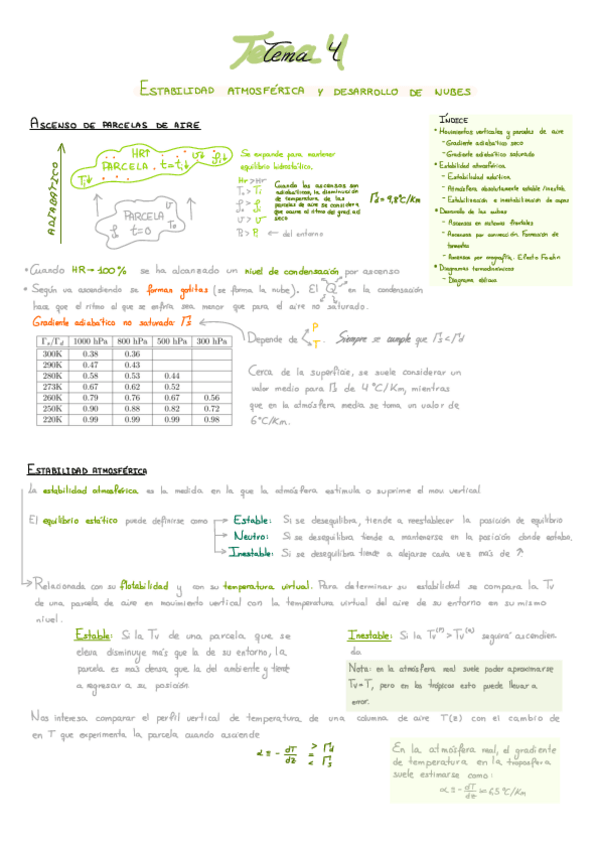 Tema 4
ESTABILIDAD ATMOSFÉRICA Y DESARROLLO DE NUBES
ASCENSO DE PARCELAS DE AIRE
ADIABÁTICO
HR↑
PARCELA t=t₁
PARCELA
t=0
Se expande para mantener
equilibrio hidrostático.
Cuando los ascensos son
adiabáticos, la disminución
de temperatura de las
parcelas de aire se considera
que ocurre al ritmo del grad. ad
seco
Γd = 9,8°C/Km
← del entorno
ÍNDICE
• Movimientos verticales y parcelas de aire
- Gradiente adiabático seco
- Gradiente adiabático saturado
• Estabilidad atmosférica
- Estabilidad estática
- Atmósfera absolutamente estable/inestab.
- Estabilización e inestabilización de capas
• Desarrollo de las nubes
- Ascensos en sistemas frontales
- Ascensos por convección. Formación de
tormentas
- Ascensos por orografía. Efecto Foehn
• Diagramas termodinámicos
- Diagrama oblicuo
• Cuando HR→100% se ha alcanzado un nivel de condensación por ascenso
• Según va ascendiendo se forman gotitas (se forma la nube). El Q en la condensación
hace que el ritmo al que se enfría sea menor que para el aire no saturado.
Gradiente adiabático no saturado: Γs
Γs/Γd 1000 hPa 800 hPa 500 hPa 300 hPa
300K 0.38 0.36
290K 0.47 0.43
280K 0.58 0.53 0.44
273K 0.67 0.62 0.52
260K 0.79 0.76 0.67 0.56
250K 0.90 0.88 0.82 0.72
220K 0.99 0.99 0.99 0.98
Depende de P
T. Siempre se cumple que Γs<Γd
Cerca de la superficie, se suele considerar un
valor medio para Γs de 4°C/Km, mientras
que en la atmósfera media se toma un valor de
6°C/Km.
ESTABILIDAD ATMOSFÉRICA
La estabilidad atmosférica es la medida en la que la atmósfera estimula o suprime el mov. vertical.
El equilibrio estático puede definirse como → Estable: Si se desequilibra, tiende a reestablecer la posición de equilibrio
→ Neutro: Si se desequilibra tiende a mantenerse en la posición donde estaba.
→ Inestable: Si se desequilibra tiende a alejarse cada vez más de
→ Relacionada con su flotabilidad y con su temperatura virtual. Para determinar su estabilidad se compara la Tv
de una parcela de aire en movimiento vertical con la temperatura virtual del aire de su entorno en su mismo
nivel.
Estable: Si la Tv de una parcela que se
eleva disminuye más que la de su entorno, la
parcela es más densa que la del ambiente y tiende
a regresar a su posición
Inestable: Si la Tv⁽ᵖ⁾ > Tv⁽ᵃ⁾ seguirá ascendien
do
Nota: en la atmósfera real suele poder aproximarse
Tv≈T, pero en los trópicos esto puede llevar a
error.
Nos interesa comparar el perfil vertical de temperatura de una columna de aire T(z) con el cambio de
en T que experimenta la parcela cuando asciende
α ≡ - dT/dz > = < Γd Γs
En la atmósfera real, el gradiente
de temperatura en la troposfera
suele estimarse como:
α ≡ - dT/dz ≈ 6,5 °C/Km